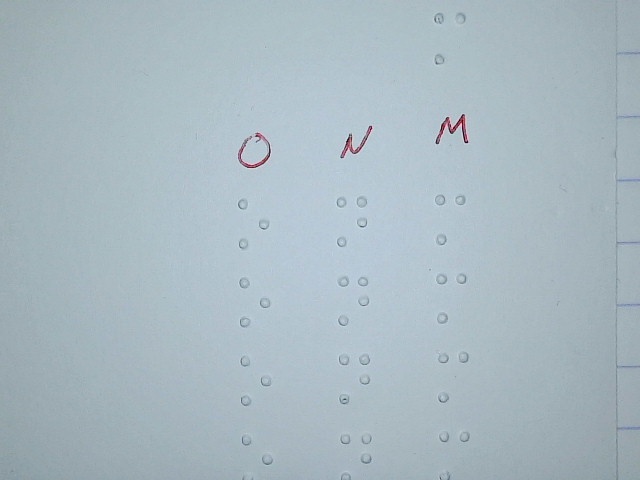 ⠍
O N M
⠕ ⠝ ⠍
⠕ ⠝ ⠍
⠕ ⠝ ⠍
⠕ ⠝ ⠍